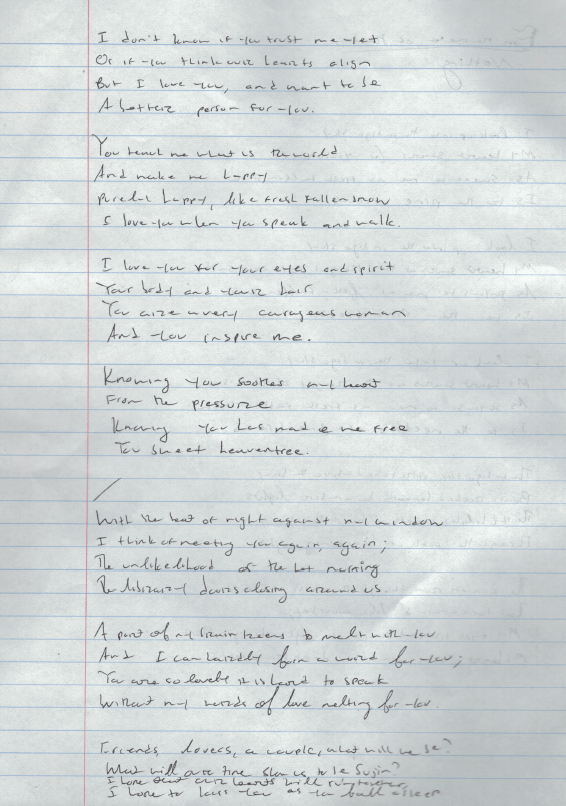 I don't know if you trust me yet
Or if you think our hearts align
But I love you, and want to be
A better person for you.
You teach me what is the world
And make me happy
Purely happy, like fresh fallen snow
I love you when you speak and walk.
I love you for your eyes and spirit
Your body and your hair
You are a very courageous woman
And you inspire me.
Knowing you soothes my heart
From the pressure
Knowing you has made me free
You sweet heaventree.
With the heat of night against my window
I think of meeting you again, again;
The unlikelihood of the hot morning
The library doors closing around us.
A part of my brain seems to melt with you
And I can hardly form a word for you;
You are so lovely it is hard to speak
Without my words of love melting for you.
Friends, lovers, a couple, what will we be?
What will our time show us to be
I hope that our hearts will run
I hope to kiss you as you fall asleep